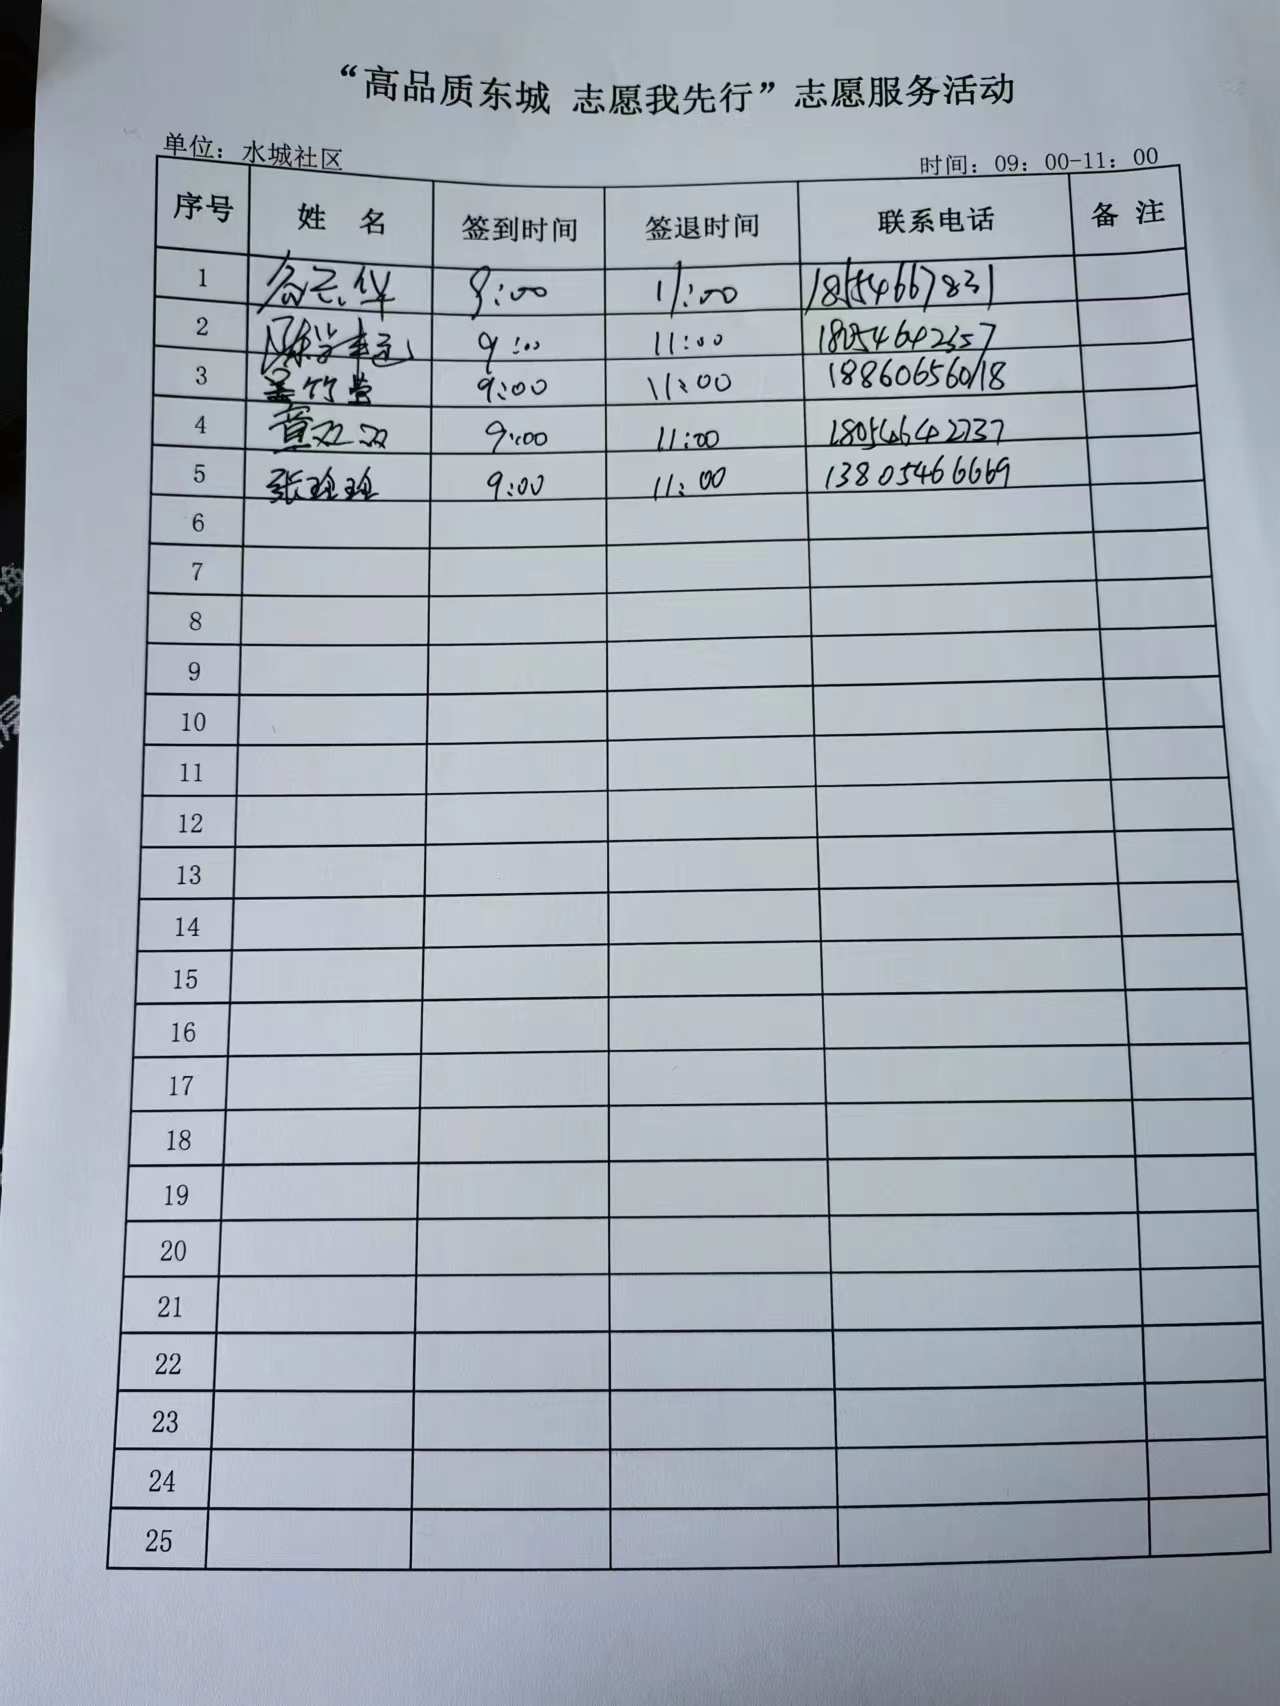 “高品质东城 志愿我先行”志愿服务活动
单位：水城社区 时间：09：00-11：00
序号 姓 名 签到时间 签退时间 联系电话 备 注
1 9:00 11:00 18554667831
2 9:00 11:00 18054642357
3 竹莹 9:00 11:00 18860656018
4 9:00 11:00 18054642737
5 张玲玲 9:00 11:00 13805466669
6
7
8
9
10
11
12
13
14
15
16
17
18
19
20
21
22
23
24
25